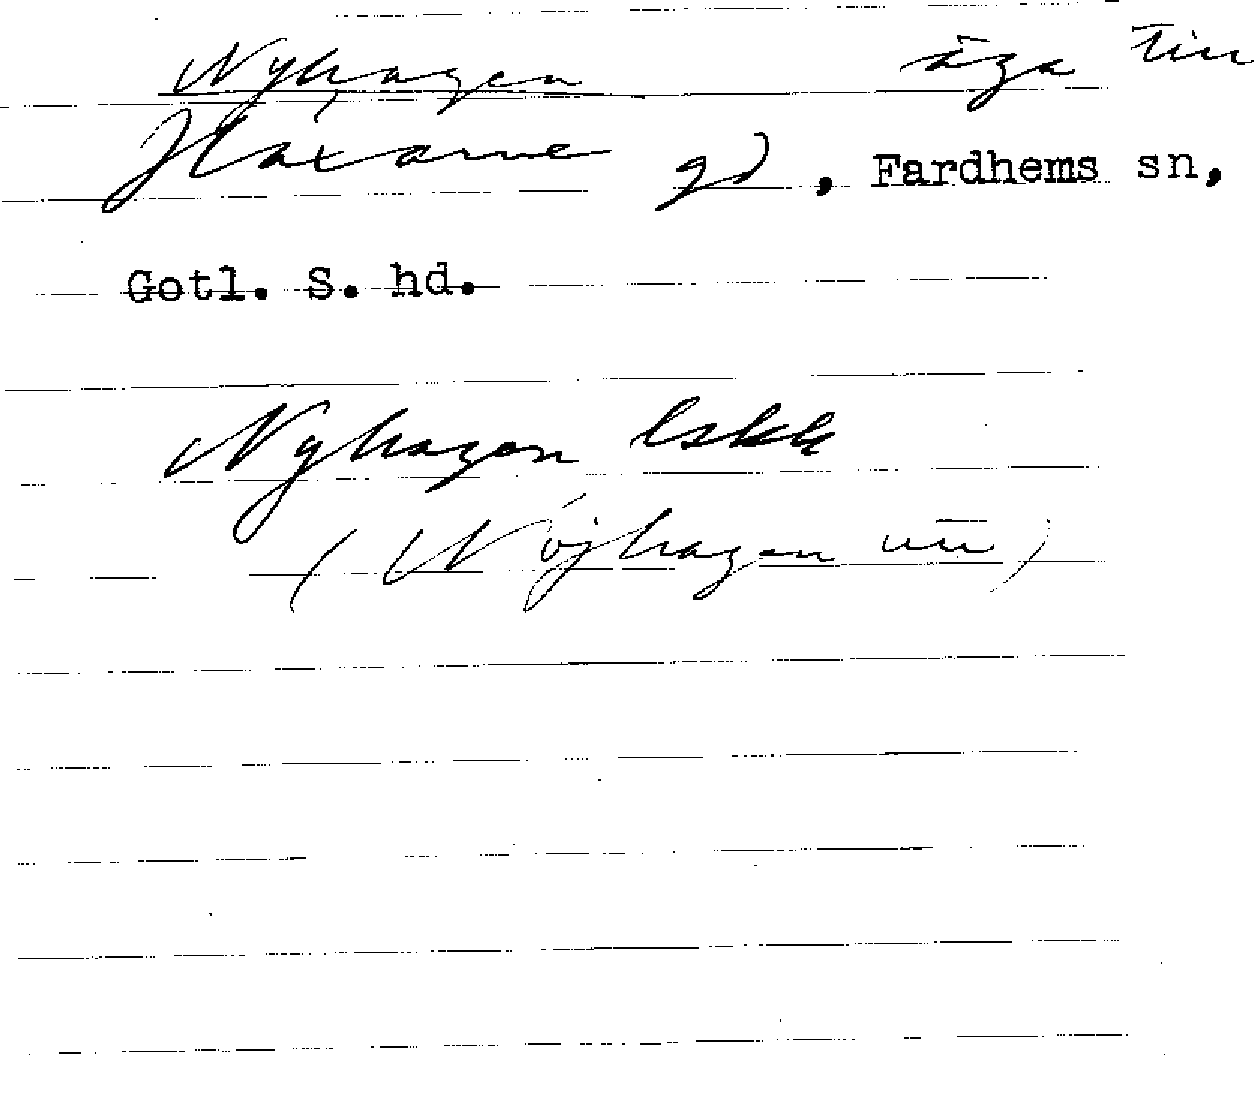 Nyhagen äga till
Haxarve gd, Fardhems sn,
Gotl. S. hd.
Nyhagen lskk
(Nöjhagen un)